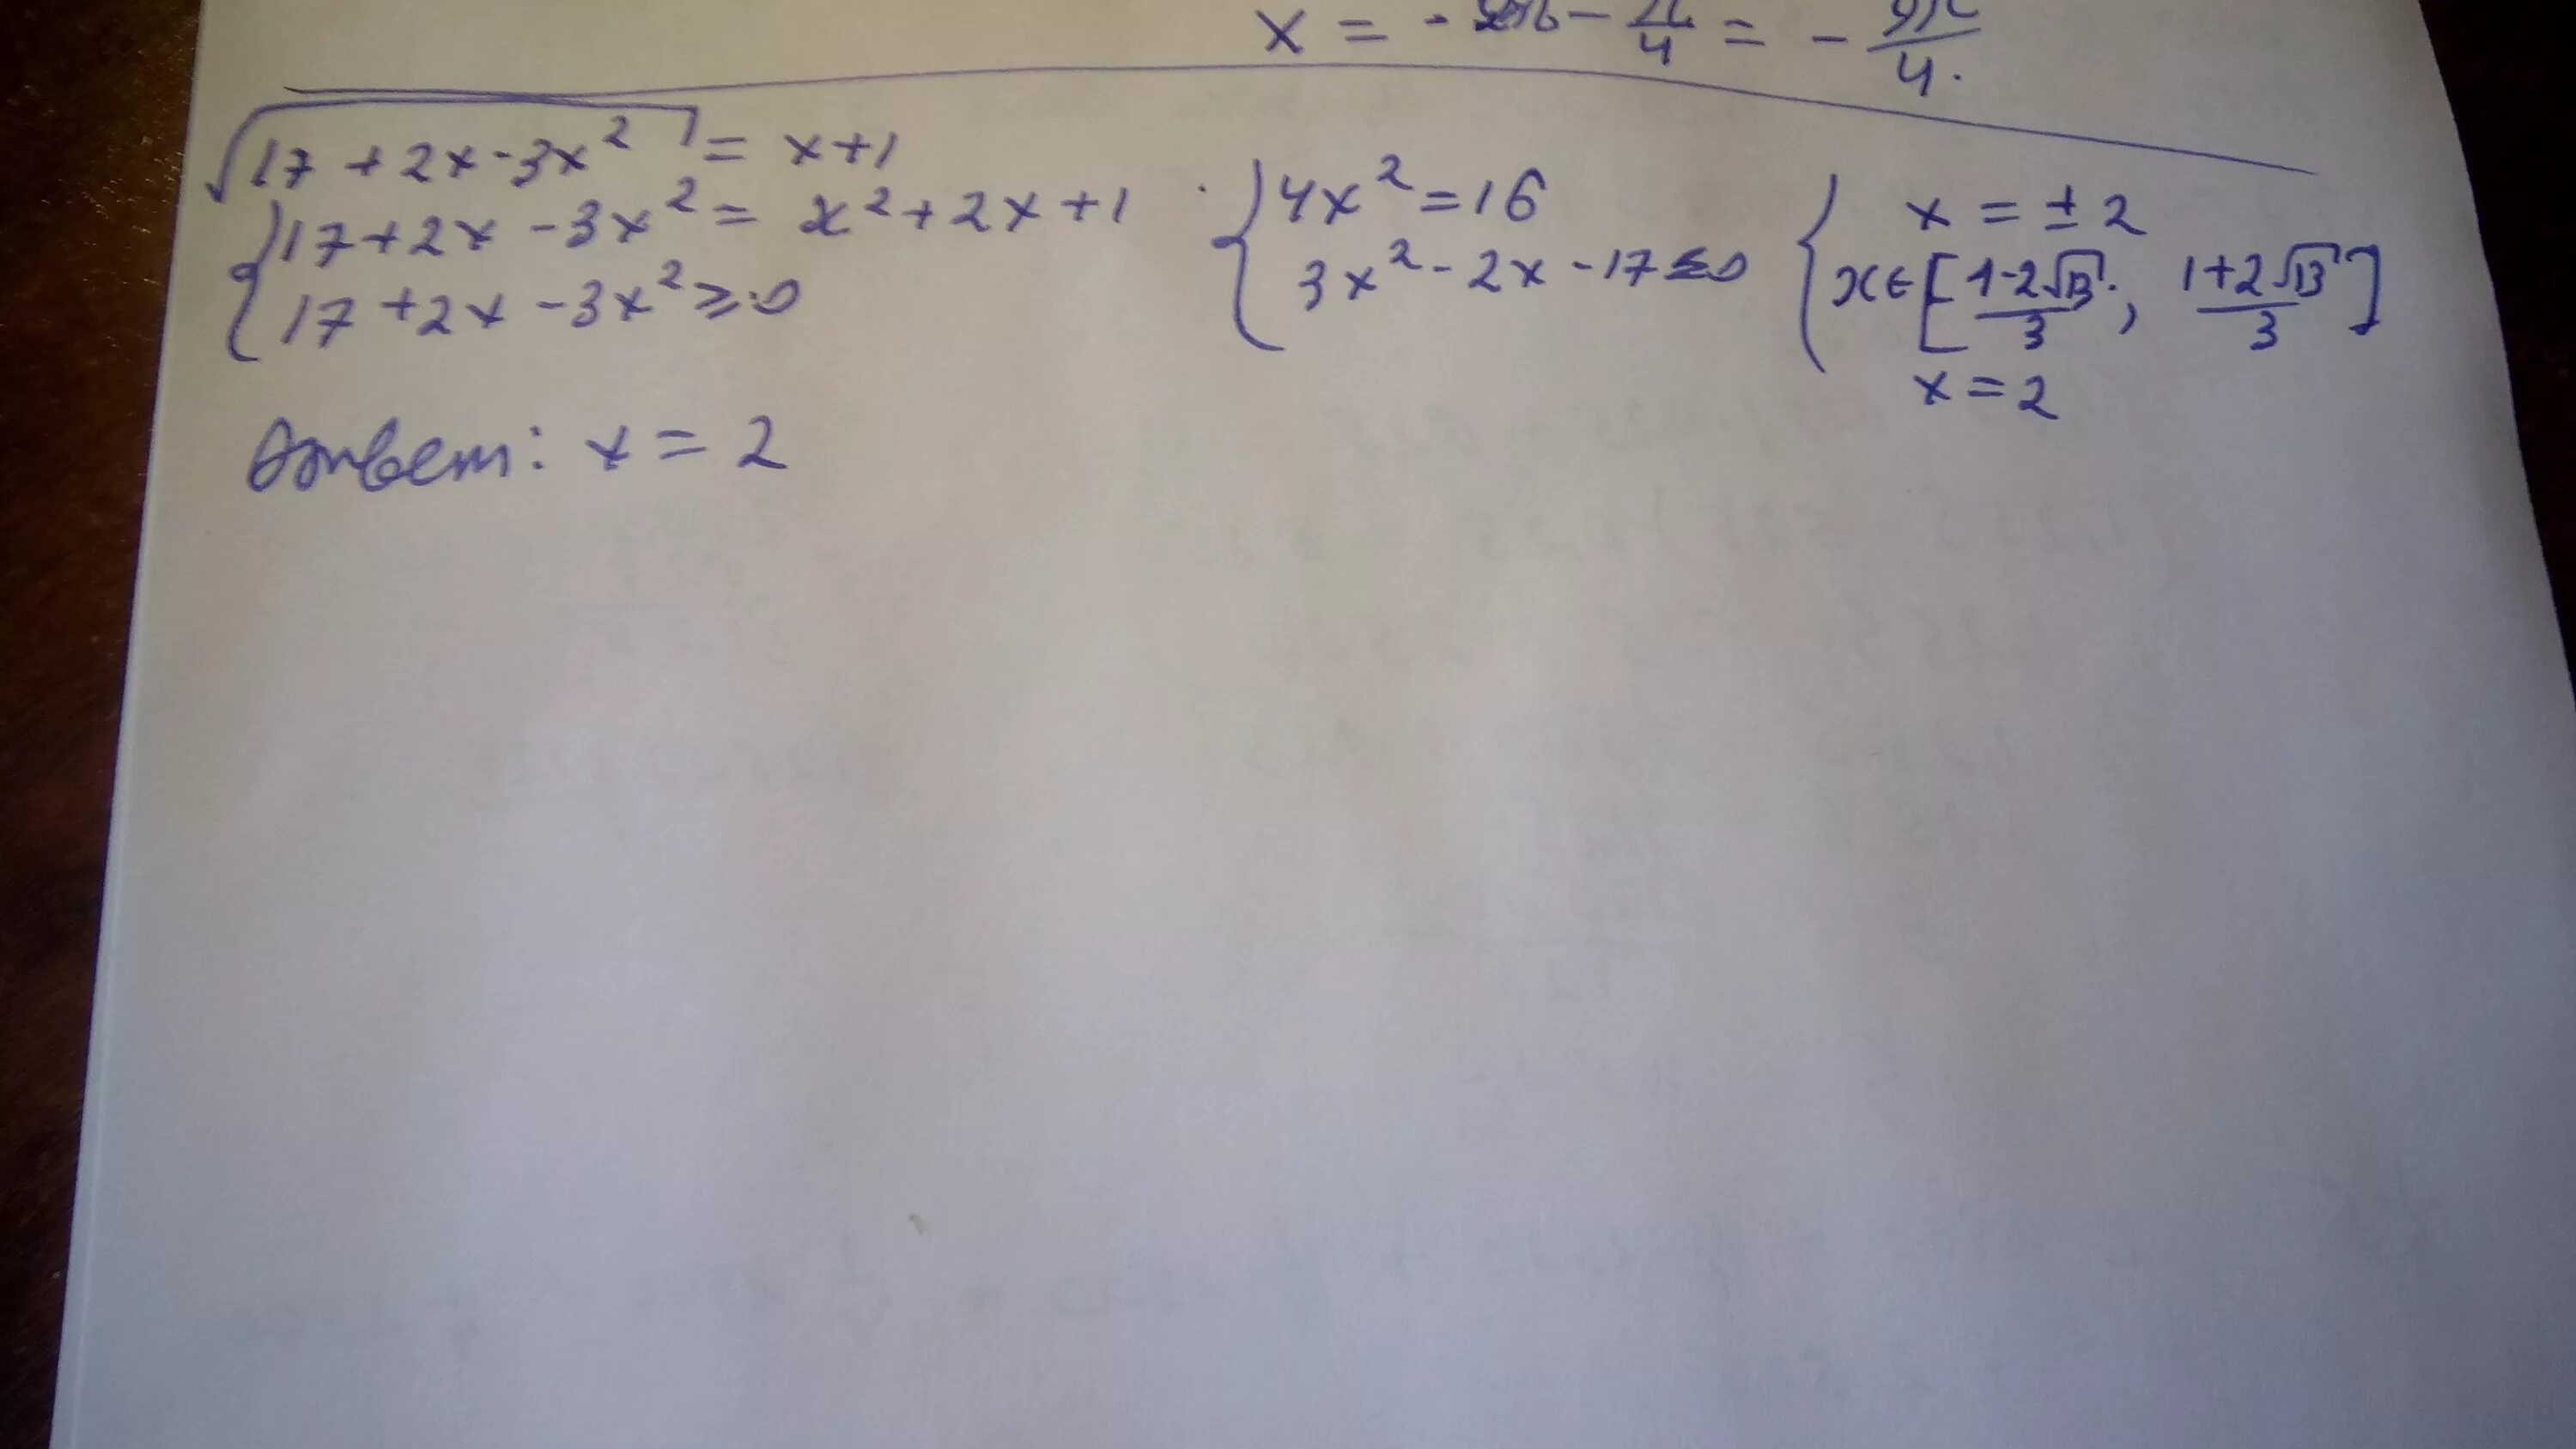 x = - - π/4 = - 9π/4.
√(17 + 2x - 3x²) = x+1
{ 17 + 2x - 3x² = x² + 2x + 1
17 + 2x - 3x² ≥ 0
{ 4x² = 16
3x² - 2x - 17 ≤ 0
{ x = ± 2
x ∈ [(1-2√13)/3 ; (1+2√13)/3]
x = 2
Ответ: x = 2